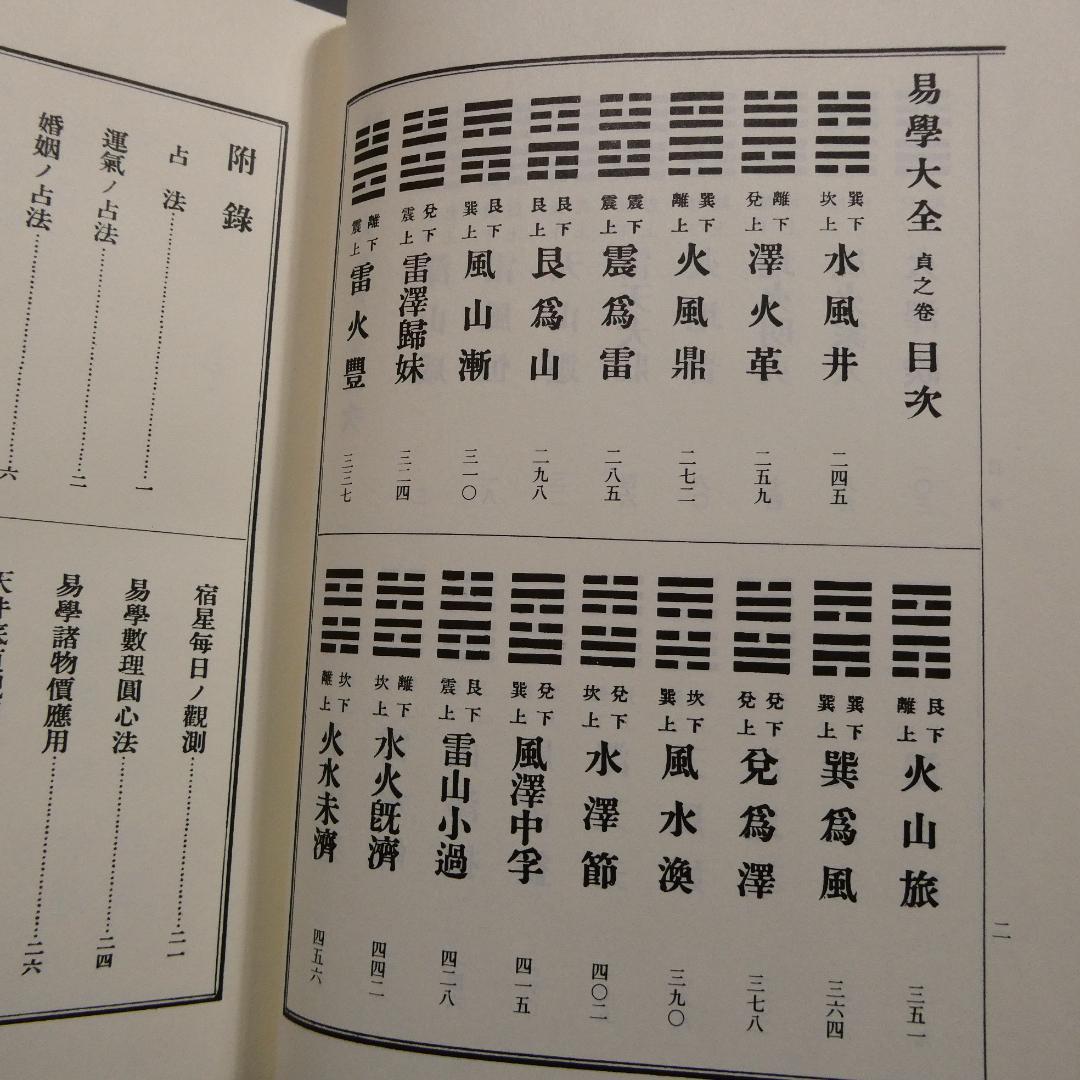 易學大全 貞之卷 目次
巽下坎上 水風井 二四五
離下兌上 澤火革 二五九
巽下離上 火風鼎 二七二
震下震上 震爲雷 二八五
艮下艮上 艮爲山 二九八
艮下巽上 風山漸 三一〇
兌下震上 雷澤歸妹 三二四
離下震上 雷火豐 三三七
艮下離上 火山旅 三五一
巽下巽上 巽爲風 三六四
兌下兌上 兌爲澤 三七八
坎下巽上 風水渙 三九〇
兌下坎上 水澤節 四〇二
兌下巽上 風澤中孚 四一五
艮下震上 雷山小過 四二八
離下坎上 水火旣濟 四四二
坎下離上 火水未濟 四五六
二
附錄
占法……………一
運氣ノ占法……………二
婚姻ノ占法……………六
宿星每日ノ觀測……………二一
易學數理圓心法……………二四
易學諸物價應用……………二六